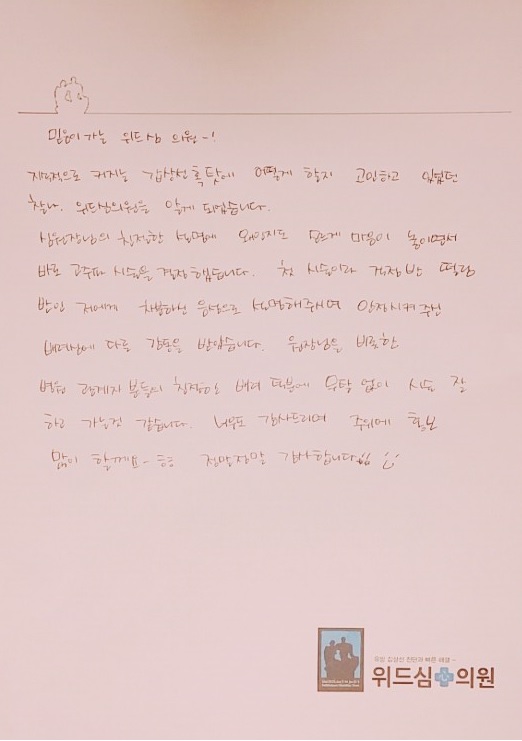 믿음이 가는 위드심 의원~!
지속적으로 커지는 갑상선 혹 탓에 어떻게 할지 고민하고 있었던
찰나, 위드심의원을 알게 되었습니다.
심원장님의 친절한 설명에 왠인지도 모르게 마음이 놓이면서
바로 고주파 시술을 결정했습니다. 첫 시술이라 걱정 반 떨림
반인 저에게 차분하신 음성으로 설명해주시며 안정시켜 주신
배려심에 다른 감동을 받았습니다. 원장님을 비롯한
병원 관계자 분들의 친절함과 배려 덕분에 무탈 없이 시술 잘
하고 가는것 같습니다. 너무도 감사드리며 주위에 홍보
많이 할께요~ ㅎㅎ 정말정말 감사합니다!!
유방 갑상선 진단과 빠른 해결 ~
위드심 의원